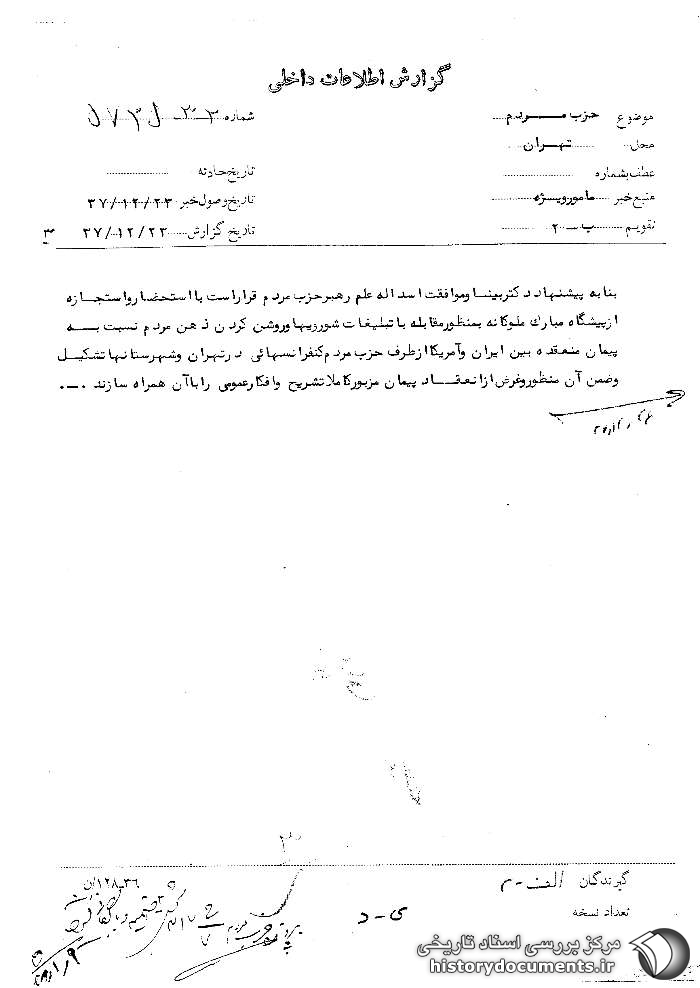 گزارش اطلاعات داخلی
موضوع حزب مردم
شماره
محل تهران
عطف بشماره
تاریخ حادثه
منبع خبر مامور ویژه
تاریخ وصول خبر ۳۷/۱۲/۲۳
تقویم ب - ۲
تاریخ گزارش ۳۷/۱۲/۲۳
بنا به پیشنهاد دکتر بینا و موافقت اسداله علم رهبر حزب مردم قرار است با استحضار و استجازه
از پیشگاه مبارك ملوکانه بمنظور مقابله با تبلیغات شورویها و روشن کردن ذهن مردم نسبت به
پیمان منعقده بین ایران و آمریکا از طرف حزب مردم کنفرانسهائی در تهران و شهرستانها تشکیل
و ضمن آن منظور و غرض از انعقاد پیمان مزبور کاملا تشریح و افکار عمومی را با آن همراه سازند
گیرندگان الف - م
تعداد نسخه
ی - د
مرکز بررسی اسناد تاریخی
historydocuments.ir